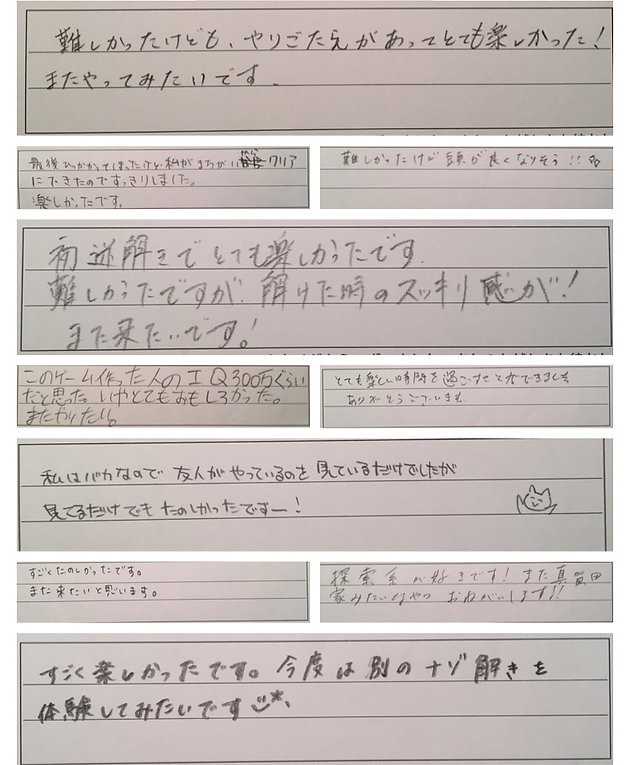 難しかったけども、やりごたえがあってとても楽しかった！
またやってみたいです。
最後ひっかかってしまったけど私がまちがい クリア
にできたのですっきりしました。
楽しかったです。
難しかったけど頭が良くなりそう!!
初謎解きでとても楽しかったです。
難しかったですが、解けた時のスッキリ感が！
また来たいです！
このゲーム作った人のIQ300万くらい
だと思った。いやとてもおもしろかった。
またやりたい。
とても楽しい時間を過ごすことができました
ありがとうございます。
私はバカなので友人がやっているのを見ているだけでしたが
見てるだけでもたのしかったですー！
すごくたのしかったです。
また来たいと思います。
探索系が好きです！また真田
家みたいなやつおねがいします!!
すごく楽しかったです。今度は別のナゾ解きを
体験してみたいです